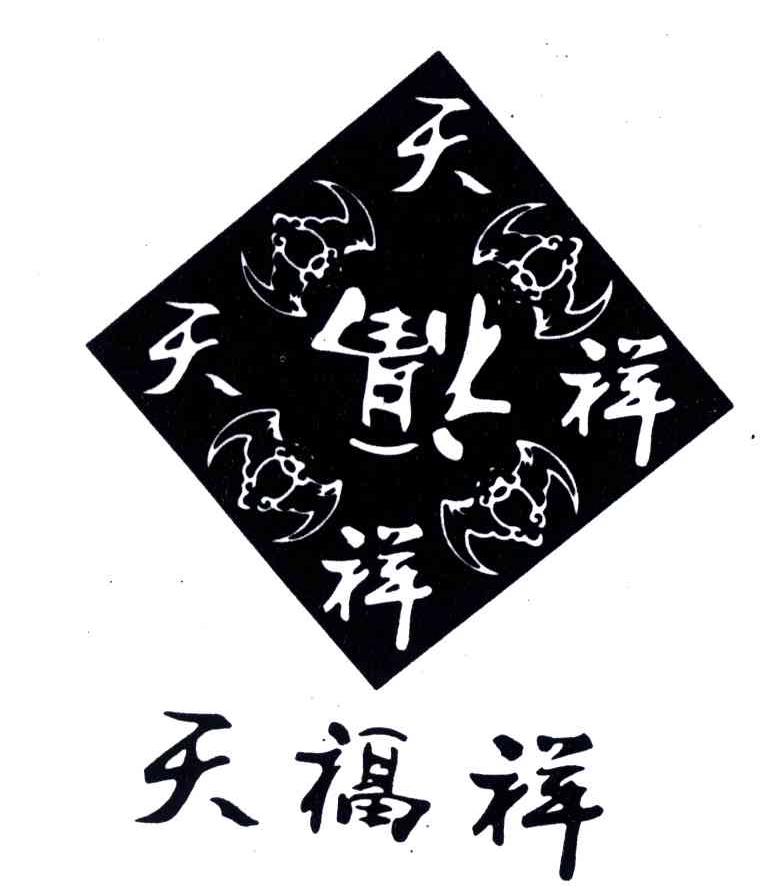 天
天 福 祥
祥
天福祥